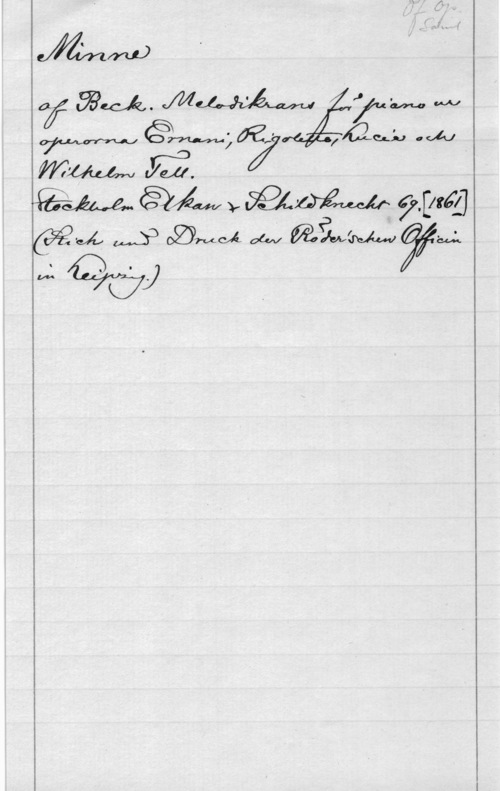 Of. Op.
Minne
af Beck. Melodikrans för piano ur
operorna Ernani, Rigoletto, Lucia och
Wilhelm Tell.
Stockholm Elkan & Schildknecht 69. [1861]
(Stich und Druck der Röder'schen Officin
in Leipzig.)